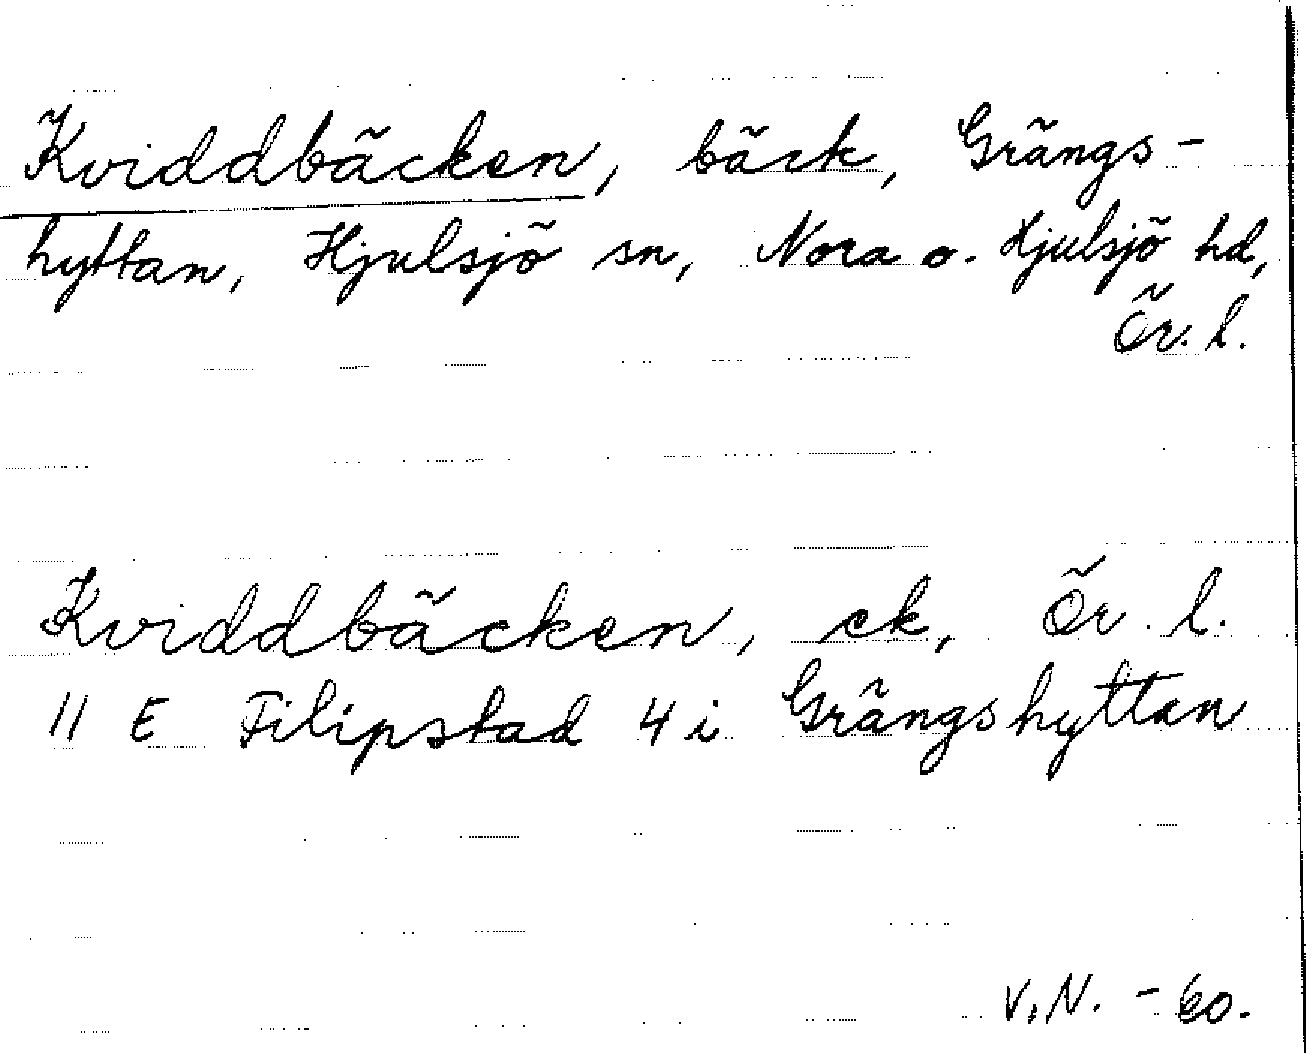 Kviddbäcken, bäck, Grängs-
hyttan, Hjulsjö sn, Nora o. Hjulsjö hd,
Ör. l.
Kviddbäcken, ek, Ör. l.
11 E Filipstad 4 i Grängshyttan
V.N. - 60.